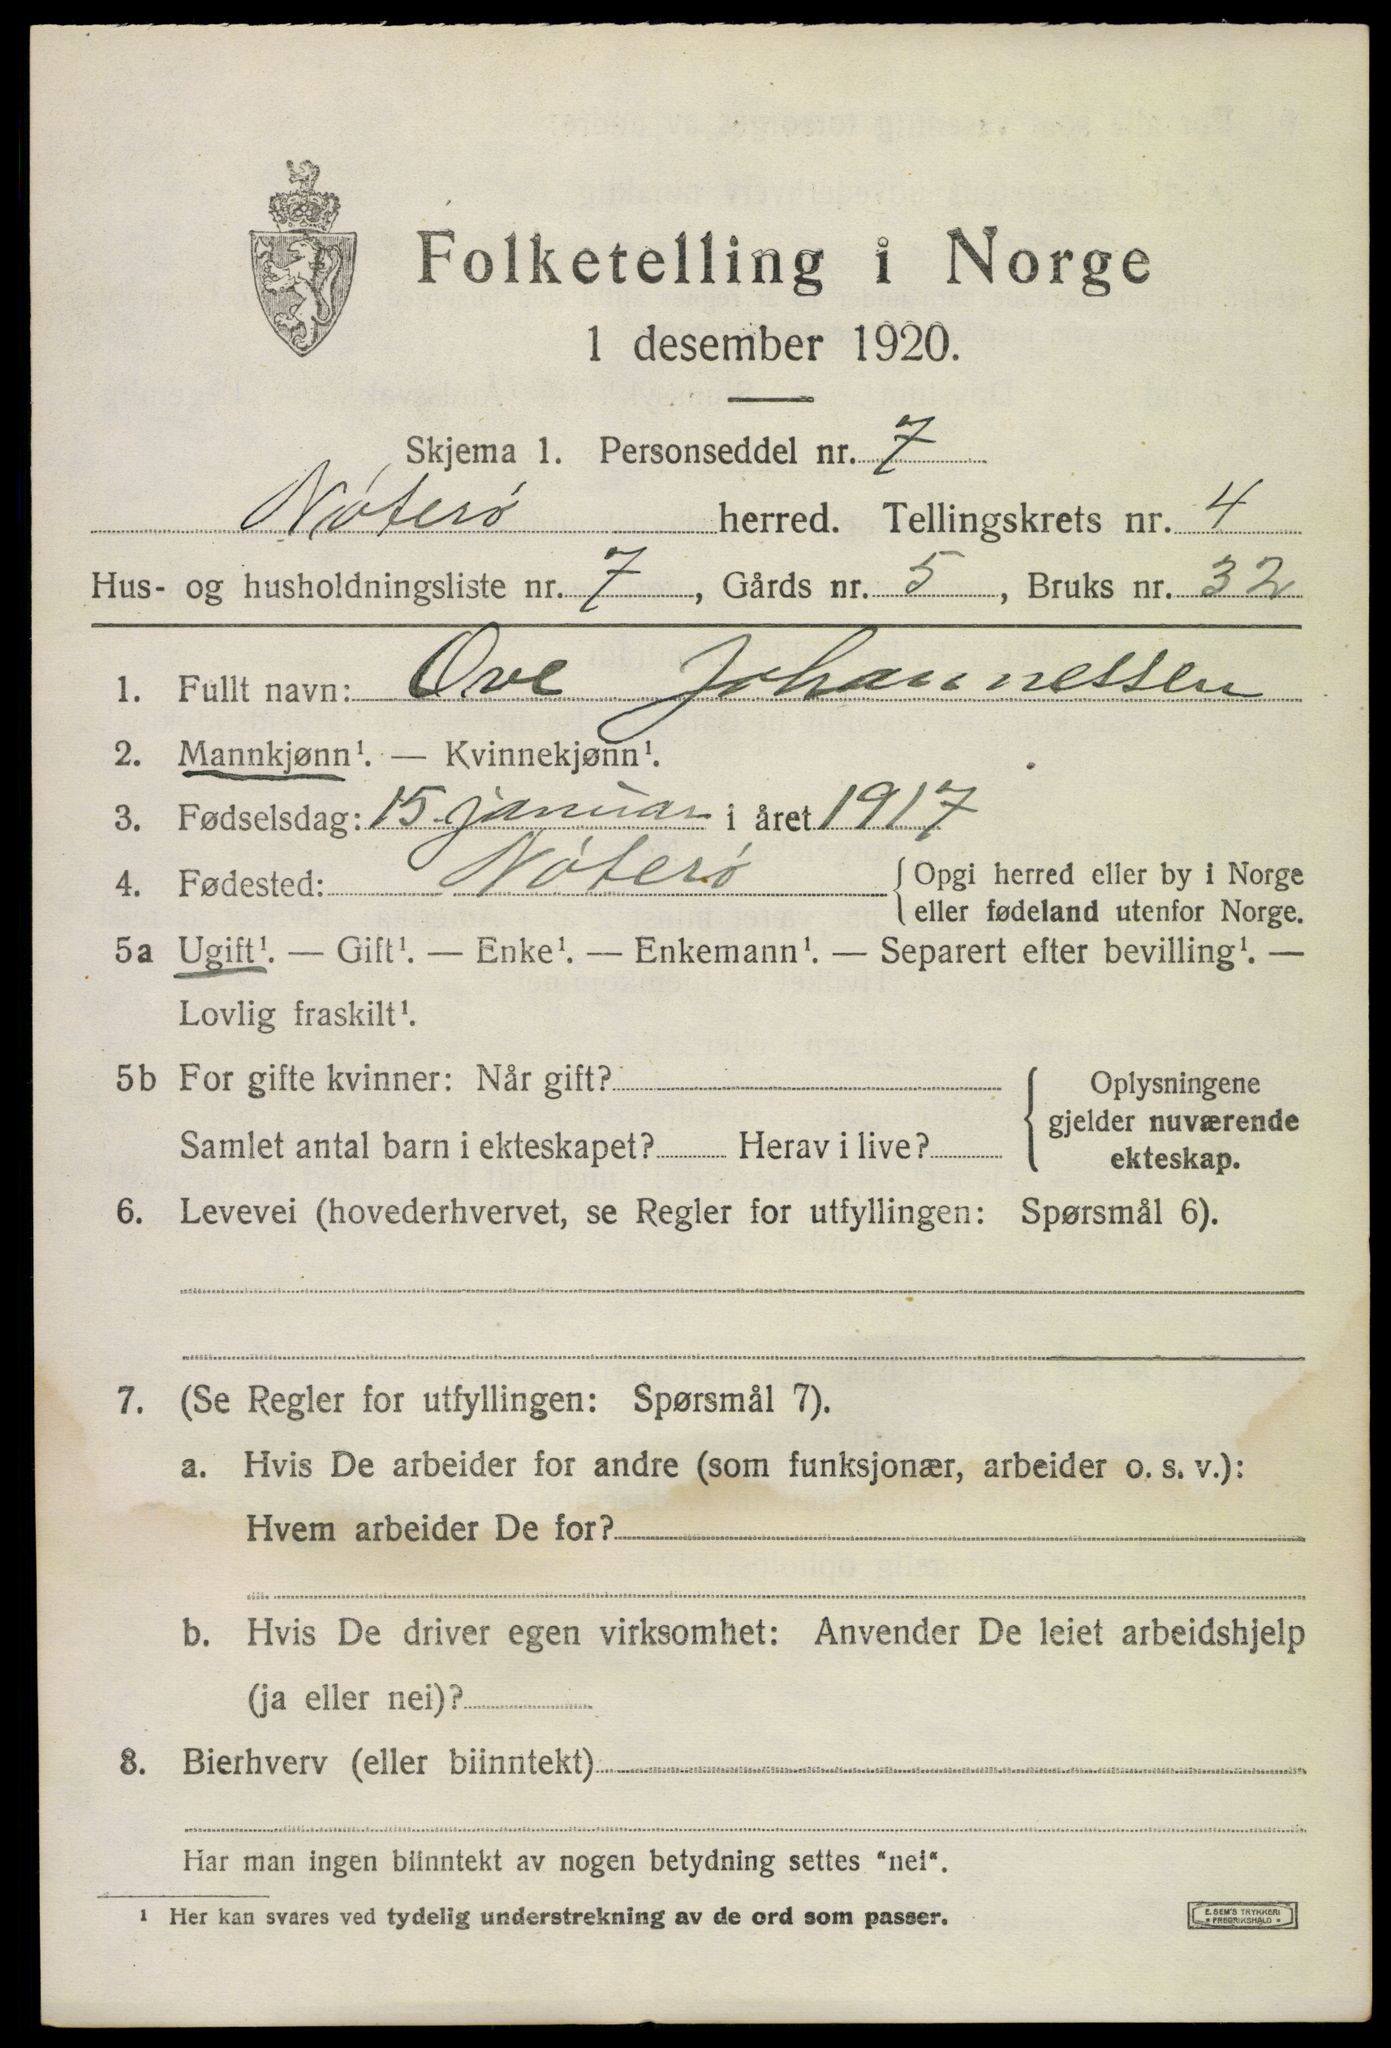 Folketelling i Norge
1 desember 1920.
Skjema 1. Personseddel nr. 7
Nøterø herred. Tellingskrets nr. 4
Hus- og husholdningsliste nr. 7, Gårds nr. 5, Bruks nr. 32
1. Fullt navn: Ove Johannessen
2. Mannkjønn¹. — Kvinnekjønn¹.
3. Fødselsdag: 15. januar i året 1917
4. Fødested: Nøterø { Opgi herred eller by i Norge
eller fødeland utenfor Norge.
5a Ugift¹. — Gift¹. — Enke¹. — Enkemann¹. — Separert efter bevilling¹. —
Lovlig fraskilt¹.
5b For gifte kvinner: Når gift?
Samlet antal barn i ekteskapet? Herav i live?
{ Oplysningene
gjelder nuværende
ekteskap.
6. Levevei (hovederhvervet, se Regler for utfyllingen: Spørsmål 6).
7. (Se Regler for utfyllingen: Spørsmål 7).
a. Hvis De arbeider for andre (som funksjonær, arbeider o. s. v.):
Hvem arbeider De for?
b. Hvis De driver egen virksomhet: Anvender De leiet arbeidshjelp
(ja eller nei)?
8. Bierhverv (eller biinntekt)
Har man ingen biinntekt av nogen betydning settes "nei".
¹ Her kan svares ved tydelig understrekning av de ord som passer.
E. SEM'S TRYKKERI
* FREDRIKSHALD *